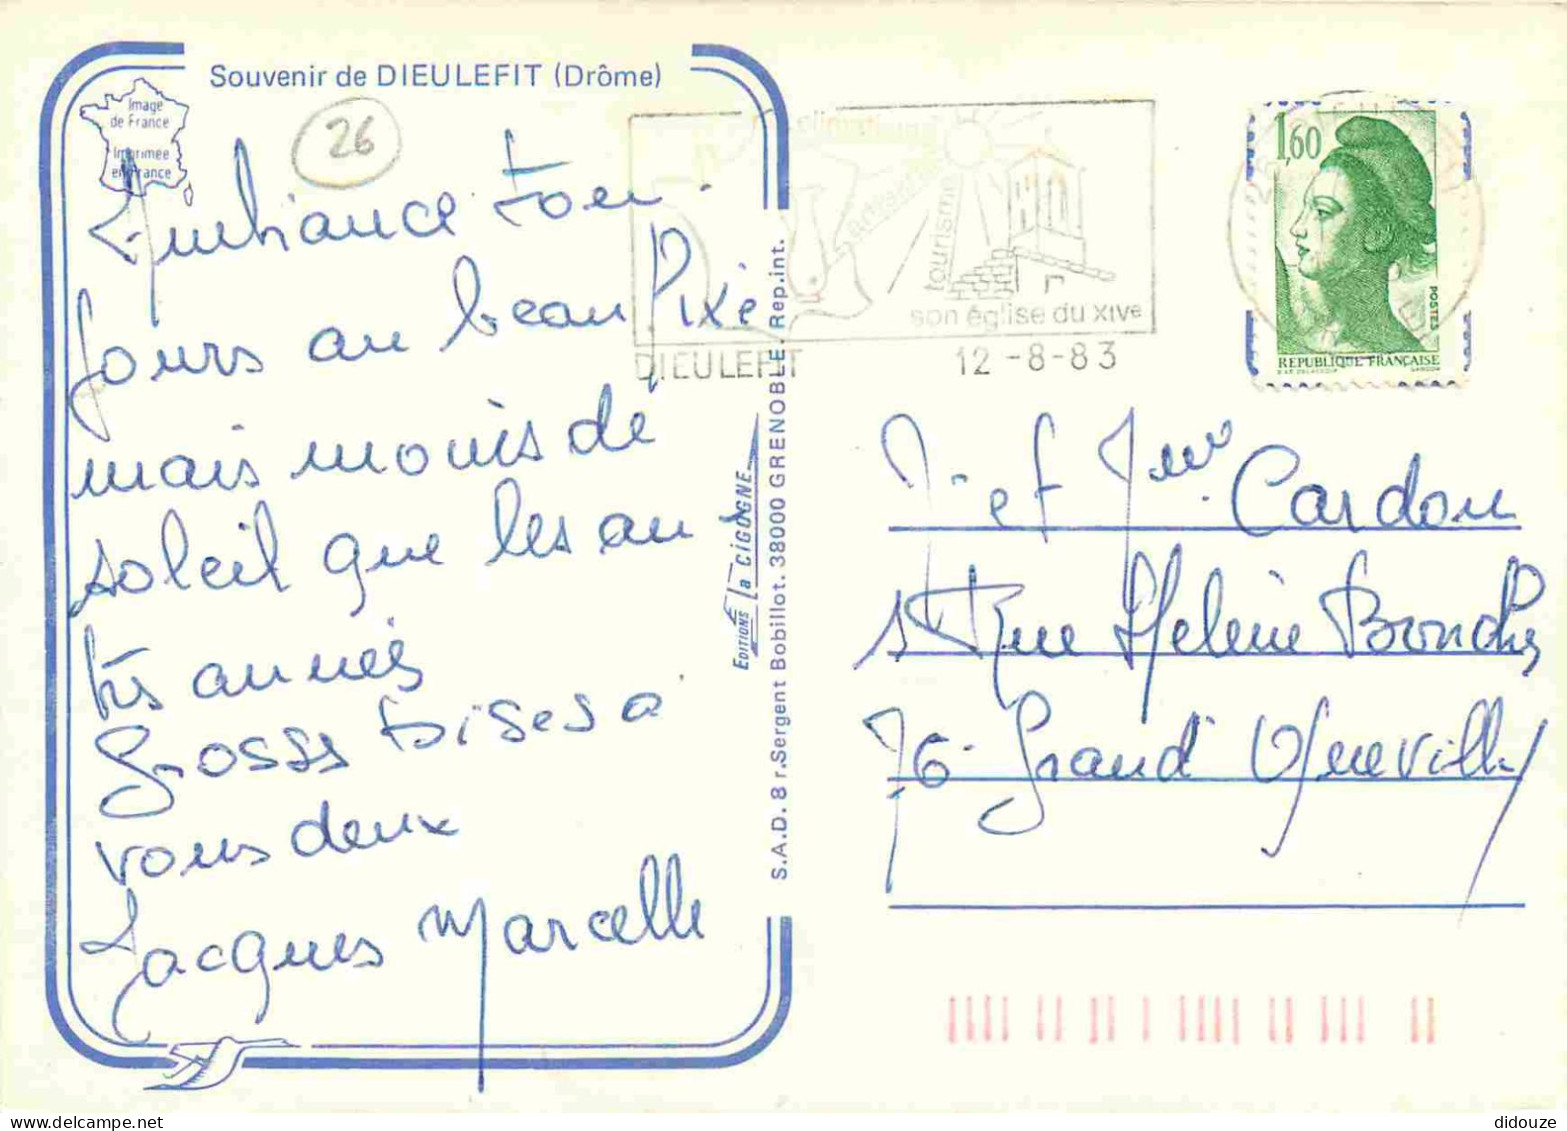 Souvenir de DIEULEFIT (Drôme)
Image
de France
Imprimée
en France
26
Ambiance tou
jours au beau Fixe
mais moins de
soleil que les au
tres années
Grosses bises à
vous deux
Jacques Marcelle
EDITIONS la CIGOGNE
S.A.D. 8 r. Sergent Bobillot. 38000 GRENOBLE. Rep. int.
climatisme
artisanat
tourisme
son église du XIVe
DIEULEFIT
12 -8-83
1,60
POSTES
REPUBLIQUE FRANÇAISE
GANDON
Mr et Mme Cardon
Rue Helene Boucher
76 - Grand Queville
didouze @ delcampe.net